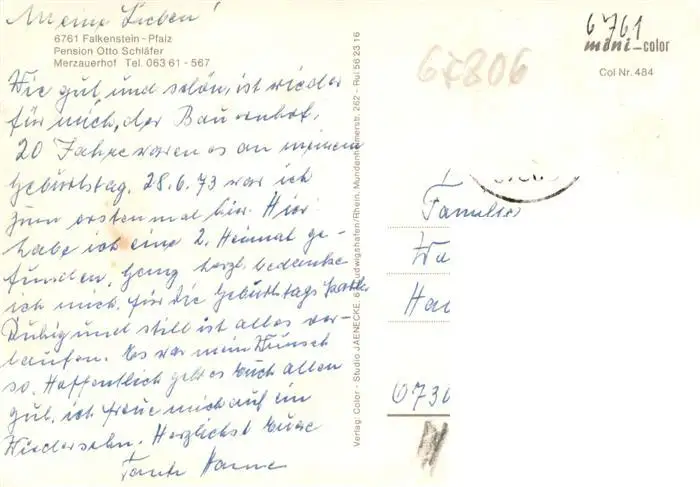 Meine Lieben!
6761 Falkenstein - Pfalz
Pension Otto Schläfer
Merzauerhof Tel. 063 61 - 567
Wie gut und schön, ist wieder
für mich, der Bauernhof,
20 Jahre waren es an meinem
Geburtstag. 28.6.73 war ich
zum erstenmal hier. Hier
habe ich eine 2. Heimat ge-
funden. Ganz herzl. bedanke
ich mich für die Geburtstags
Ruhig und still ist alles ver-
laufen. Es war mein Wunsch
so. Hoffentlich geht es Euch allen
gut, ich freue mich auf ein
Wiedersehn. Herzlichst Eure
Tante Hanne
Verlag: Color - Studio JAENECKE, 67 Ludwigshafen/Rhein, Mundenheimerstr. 262 - Ruf 56 23 16
6761
mini-color
Col Nr. 484
67806
Familie
Wa
Hau
6730